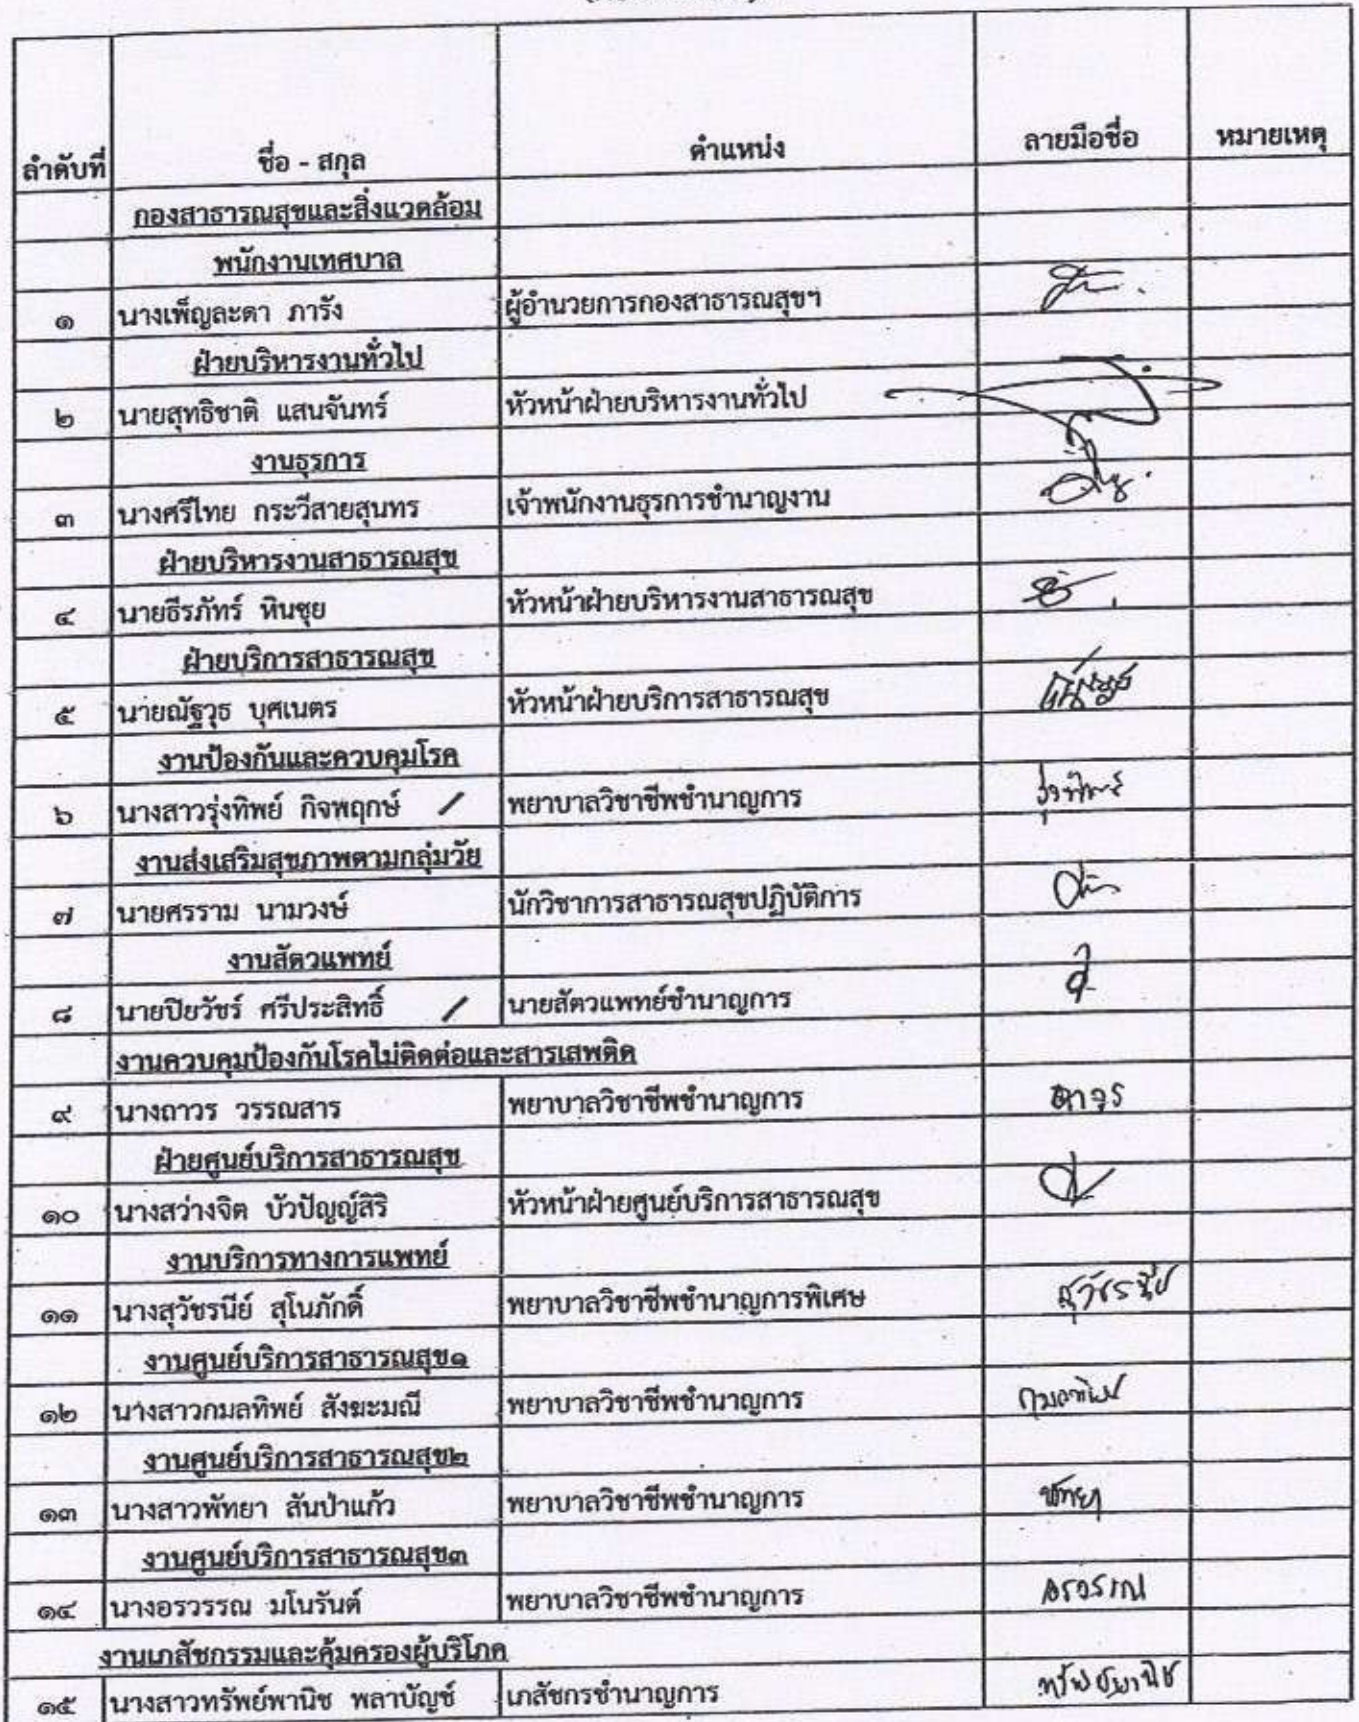 ลำดับที่ ชื่อ - สกุล ตำแหน่ง ลายมือชื่อ หมายเหตุ
กองสาธารณสุขและสิ่งแวดล้อม
พนักงานเทศบาล
๑ นางเพ็ญละดา ภารัง ผู้อำนวยการกองสาธารณสุขฯ
ฝ่ายบริหารงานทั่วไป
๒ นายสุทธิชาติ แสนจันทร์ หัวหน้าฝ่ายบริหารงานทั่วไป
งานธุรการ
๓ นางศรีไทย กระวีสายสุนทร เจ้าพนักงานธุรการชำนาญงาน
ฝ่ายบริหารงานสาธารณสุข
๔ นายธีรภัทร์ หินซุย หัวหน้าฝ่ายบริหารงานสาธารณสุข
ฝ่ายบริการสาธารณสุข
๕ นายณัฐวุธ บุศเนตร หัวหน้าฝ่ายบริการสาธารณสุข
งานป้องกันและควบคุมโรค
๖ นางสาวรุ่งทิพย์ กิจพฤกษ์ / พยาบาลวิชาชีพชำนาญการ รุ่งทิพย์
งานส่งเสริมสุขภาพตามกลุ่มวัย
๗ นายศรราม นามวงษ์ นักวิชาการสาธารณสุขปฏิบัติการ
งานสัตวแพทย์
๘ นายปิยวัชร์ ศรีประสิทธิ์ / นายสัตวแพทย์ชำนาญการ
งานควบคุมป้องกันโรคไม่ติดต่อและสารเสพติด
๙ นางถาวร วรรณสาร พยาบาลวิชาชีพชำนาญการ ถาวร
ฝ่ายศูนย์บริการสาธารณสุข
๑๐ นางสว่างจิต บัวปัญญ์สิริ หัวหน้าฝ่ายศูนย์บริการสาธารณสุข
งานบริการทางการแพทย์
๑๑ นางสุวัชรนีย์ สุโนภักดิ์ พยาบาลวิชาชีพชำนาญการพิเศษ สุวัชรนีย์
งานศูนย์บริการสาธารณสุข๑
๑๒ นางสาวกมลทิพย์ สังฆะมณี พยาบาลวิชาชีพชำนาญการ กมลทิพย์
งานศูนย์บริการสาธารณสุข๒
๑๓ นางสาวพัทยา สันป่าแก้ว พยาบาลวิชาชีพชำนาญการ พัทยา
งานศูนย์บริการสาธารณสุข๓
๑๔ นางอรวรรณ มโนรันต์ พยาบาลวิชาชีพชำนาญการ อรวรรณ
งานเภสัชกรรมและคุ้มครองผู้บริโภค
๑๕ นางสาวทรัพย์พานิช พลาบัญช์ เภสัชกรชำนาญการ ทรัพย์พานิช